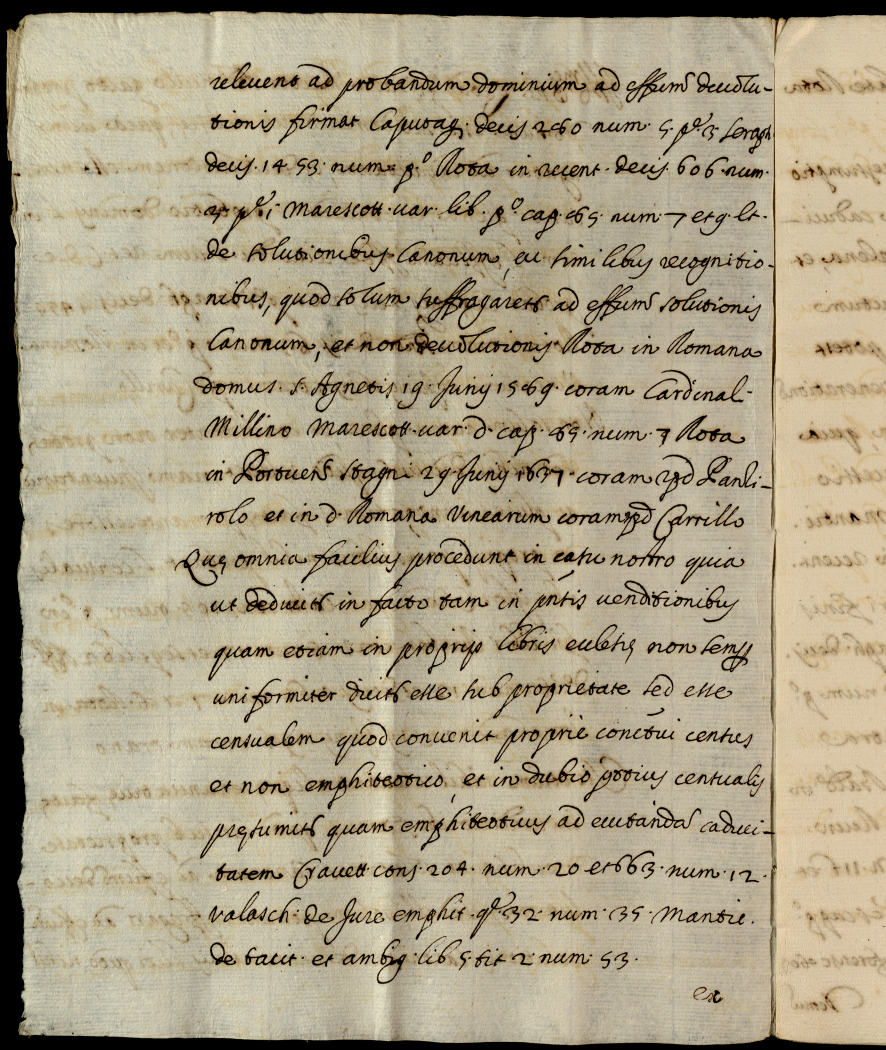 releuent ad probandum dominium ad effum̃ deuolu-
tionis firmat Caputaq. decis 260 num. 5 pᵉ 3 Seraph
decis. 1453. num. pº Rota in recent. decis. 606. num.
pᵉ 1 Marescott. uar. lib. pº cap. 65. num. 7 et 9. et.
de solutionibus Canonum, eu similibus recognitio-
nibus, quod solum suffragaretr ad effum̃ solutionis
Canonum, et non deuolutionis Rota in Romana
domus. S. Agnetis 19. Junij 1569. coram Cardinal-
Millino Marescott. uar. d. cap. 65. num. 7 Rota
in Portuen̄ Stagni 29. Junij 1637. coram Rpd Panzi-
rolo et in d. Romana Vinearum coram Rpd Carrillo
Quę omnia facilius procedunt in casu nostro quia
ut deducitr in facto tam in pn̄tis uenditionibus
quam etiam in proprijs libris ecclesię non semp
uniformiter dicitr esse sub proprietate sed esse
censualem quod conuenit propriè conc̄tui census
et non emphiteotico, et in dubio potius censualis
pręsumitr quam emphiteoticus ad euitandā caduci-
tatem Crauett cons. 204. num. 20 et 663. num. 12.
Valasch. de Jure emphit. qᵉ. 32. num. 35. Mantic.
de tacit. et ambig. lib. 5 tit. 2. num. 53.
ex